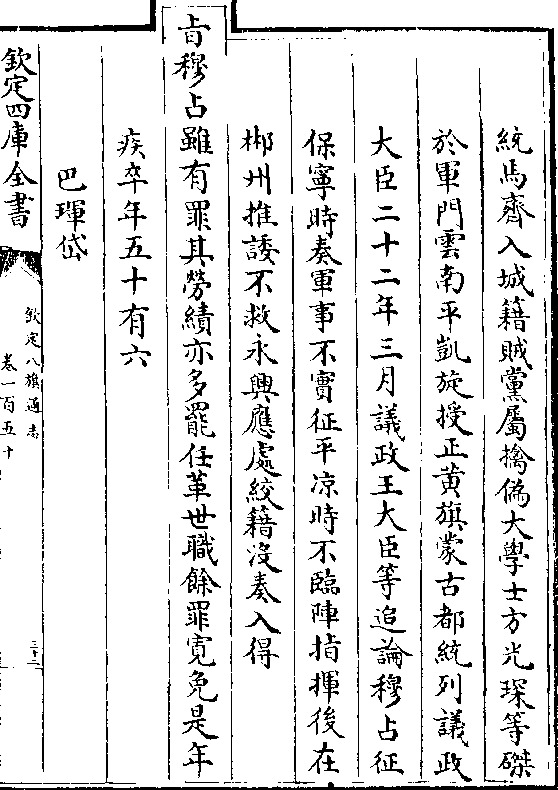 統馬齊入城籍賊黨屬擒偽大學士方光琛等磔
於軍門雲南平凱旋授正黄旗蒙古都統列議政
大臣二十二年三月議政王大臣等追論穆占征
保寧時奏軍事不實征平凉時不臨陣指揮後在
郴州推諉不救永興應處絞籍没奏入得
㫖穆占雖有罪其勞績亦多罷任革世職餘罪寛免是年
疾卒年五十有六
巴琿岱
欽定四庫全書
欽定八旗通志
卷一百五十
三十二